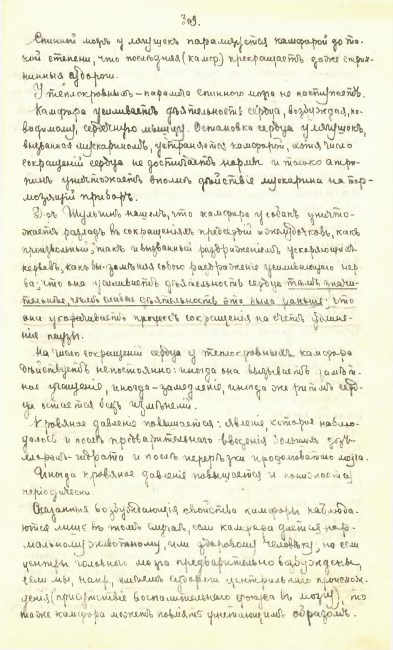 309.
Спинной мозгъ у лягушекъ парализуется камфарой до та-
кой степени, что последняя (камф) прекращаетъ даже стрих-
нинныя судороги.
У теплокровныхъ – паралича спинного мозга не наступаетъ.
Камфара усиливаетъ дѣятельность сердца, возбуждая, по-
видимому, сердечную мышцу. Остановка сердца у лягушекъ,
вызванная мускариномъ, устраняется камфарой, хотя число
сокращеній сердца не достигаетъ нормы и только атро-
пинъ уничтожаетъ вполнѣ дѣйствіе мускарина на тор-
мозящій приборъ.
Д-ръ Шульгинъ нашелъ, что камфара у собакъ уничто-
жаетъ разладъ въ сокращеніяхъ предсердій и желудочковъ, какъ
произвольный, такъ и вызванный раздраженіемъ ускоряющихъ
нервовъ, какъ бы замѣняя собою раздраженіе усиливающаго нер-
ва; что она усиливаетъ дѣятельность сердца тѣмъ значи-
тельнѣе, чѣмъ слабѣе дѣятельность эта была раньше; что
она укорачиваетъ процессъ сокращенія на счетъ
паузы.
На число сокращеній сердца у теплокровныхъ камфара
дѣйствуетъ непостоянно: иногда она вызываетъ замѣт-
ное учащеніе, иногда – замедленіе, иногда же ритмъ серд-
ца остается безъ измѣненій.
Кровяное давленіе повышается: явленіе, которое наблю-
далось и послѣ предварительнаго введенія большихъ дозъ
хлоралъ-гидрата и послѣ перерѣзки продолговатаго мозга.
Иногда кровяное давленіе повышается и понижается
періодически.
Сказанныя возбуждающія свойства камфары наблюда-
ются лишь въ томъ случаѣ, если камфара дается нор-
мальному животному, или здоровому человѣку; но если
центры головного мозга предварительно возбуждены,
если мы, напр, имѣемъ судороги центральнаго происхож-
денія (присутствіе воспалительнаго фокуса въ мозгу), то
та же камфара можетъ повліять угнетающимъ образомъ.